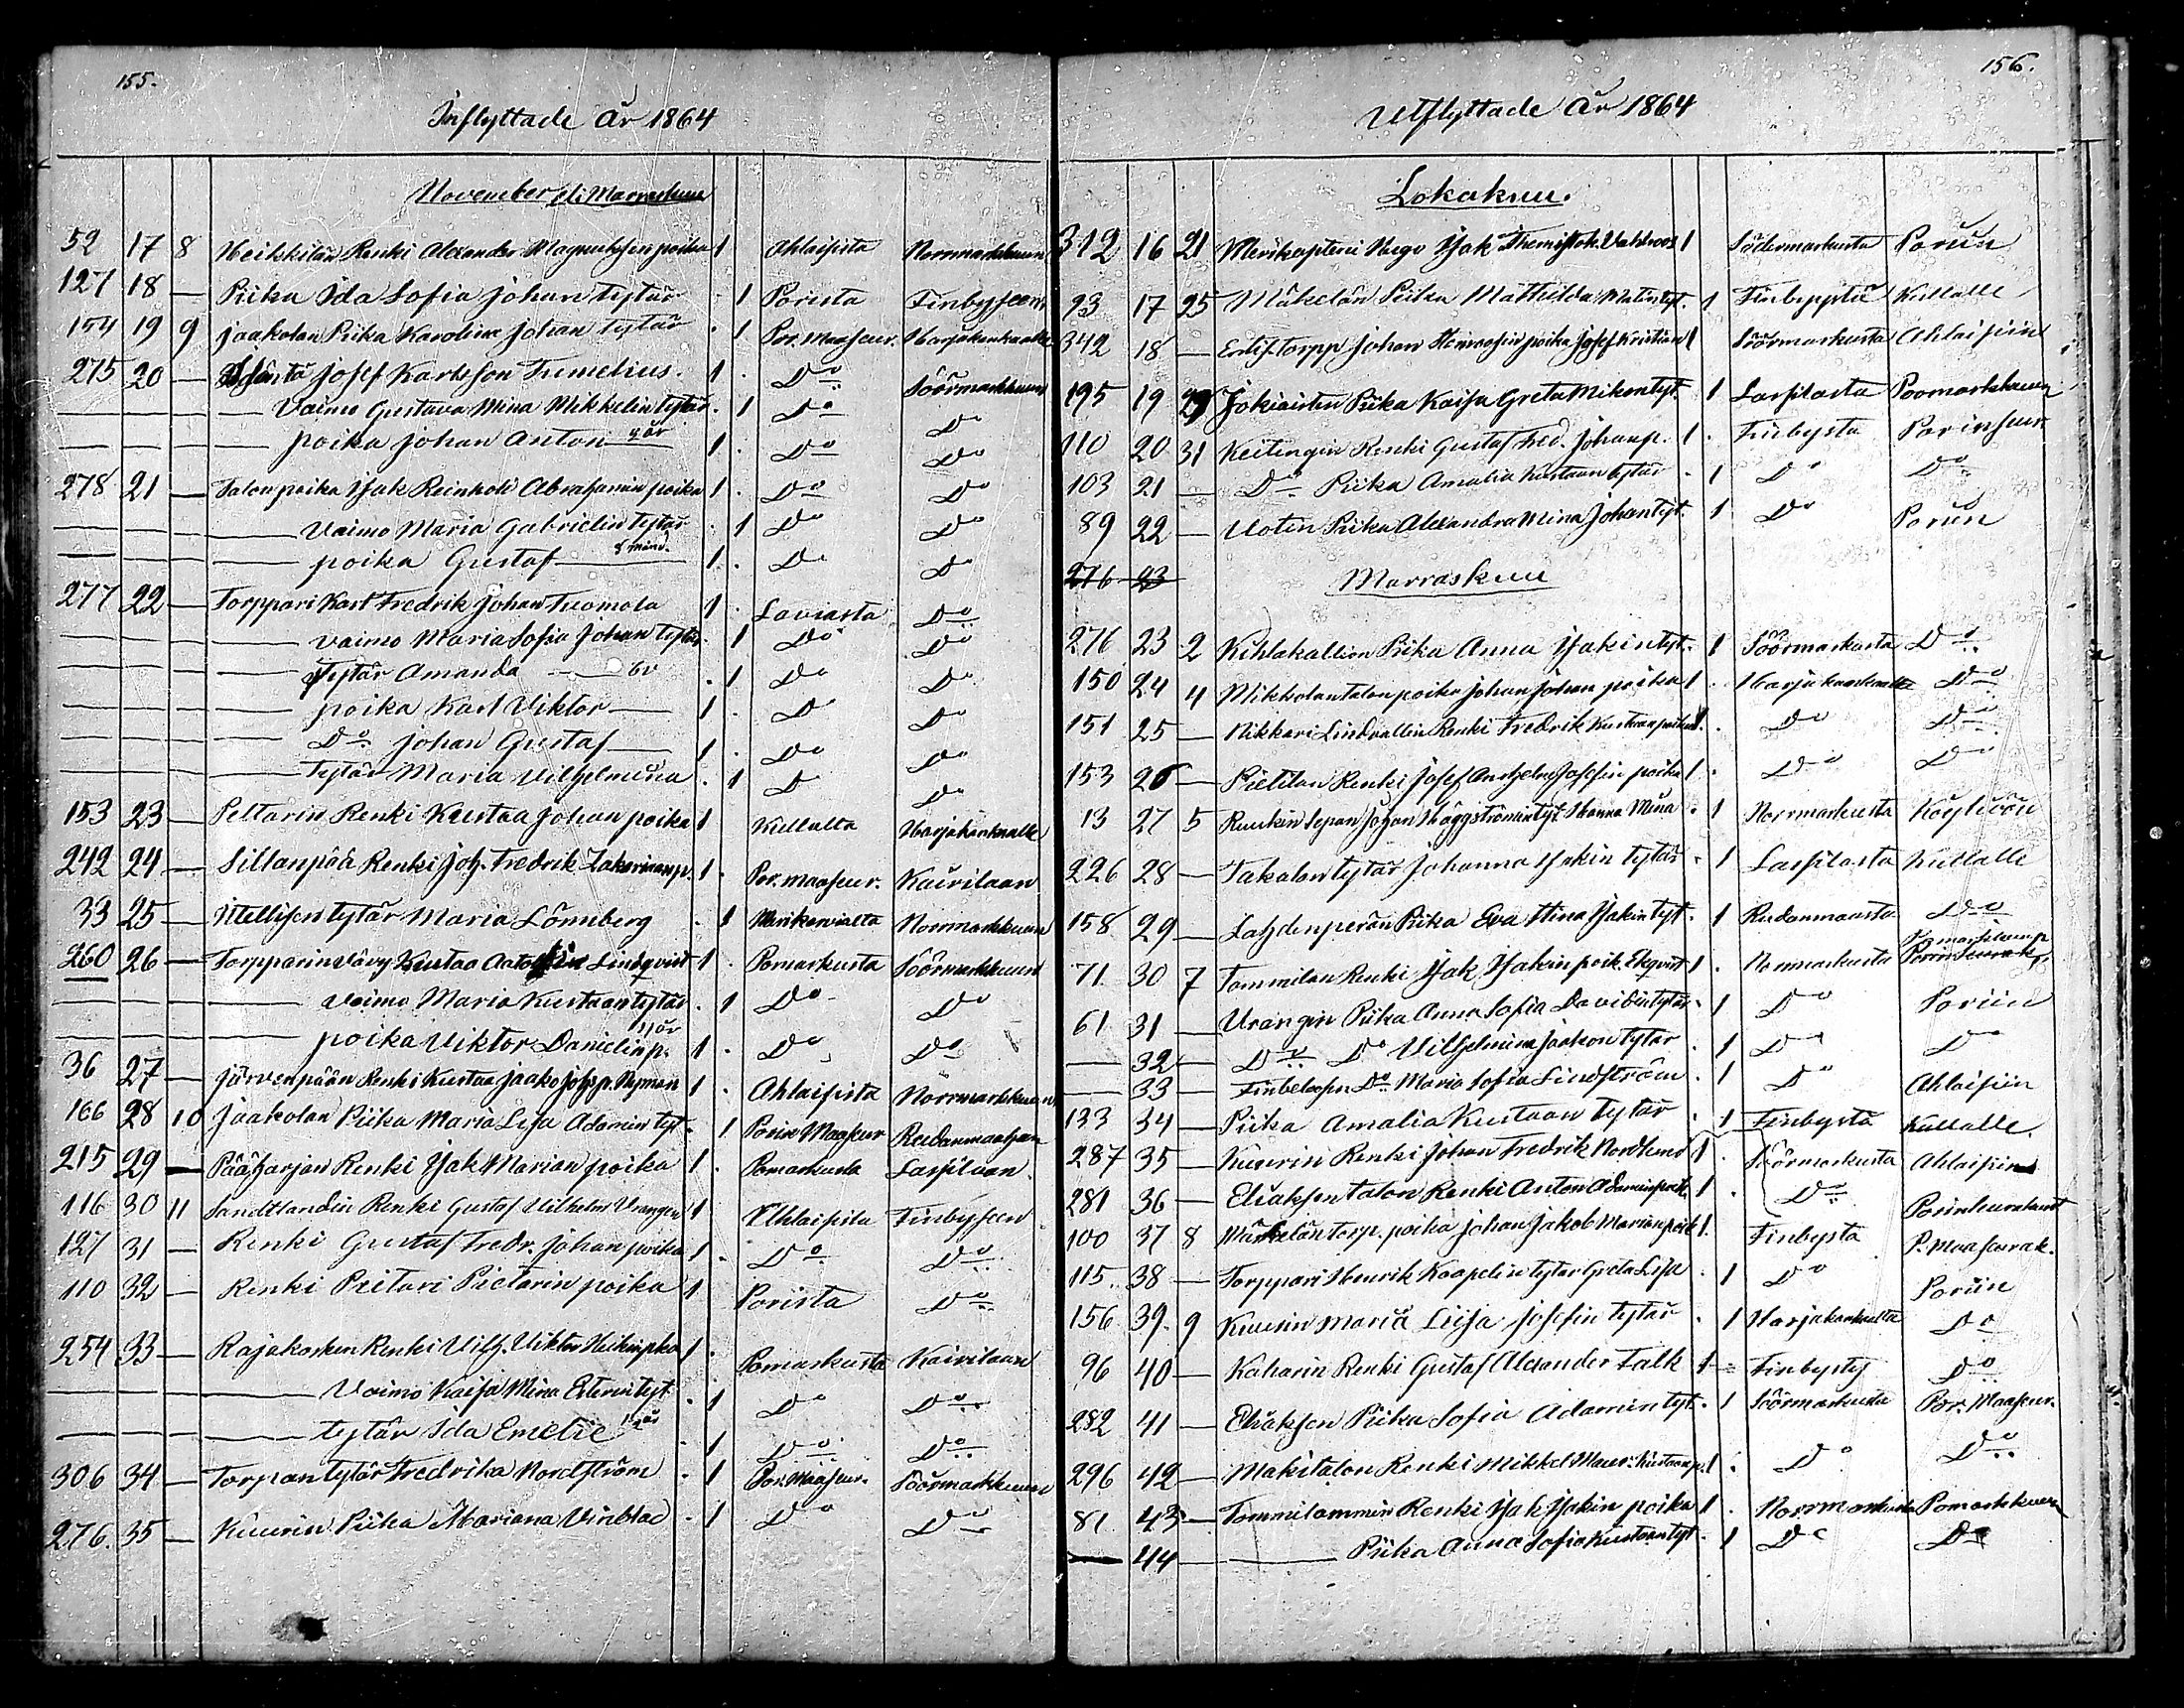 155.
Inflyttade år 1864
November eli Marraskuu
52 17 8 Heikkilän Renki Alexander Magnuksen poika 1 Ahlaisista Norrmarkkuun
127 18 — Piika Ida Sofia Johan tytär . 1 Porista Finbyseen
154 19 9 Jaakolan Piika Karolina Johan tytär . 1 Por. Maaseur. Harjakankaalle
275 20 — Josef Karlsson Tumelius. 1 . Do Söörmarkkuun
— — — Vaimo Gustava Mina Mikkelin tytär . 1 Do Do
— — — poika Johan Anton 9 år 1 . Do Do
278 21 — Talon poika Isak Reinhold Abrahamin poika 1 . Do Do
— — — Vaimo Maria Gabrielin tytär . 1 Do Do
— — — poika Gustaf 8 mån. 1 . Do Do
277 22 — Torppari Karl Fredrik Johan Tuomola 1 . Laviasta Do
— — — vaimo Maria Sofia Johan tytär . 1 Do Do
— — — Tytär Amanda . 1 Do Do
— — — poika Karl Viktor — 1 . Do Do
— — — Do Johan Gustaf — 1 . Do Do
— — — Tytär Maria Vilhelmina . 1 Do Do
153 23 — Peltarin Renki Kustaa Johan poika 1 Kullalta Harjakankaalle
242 24 — Sillanpää Renki Joh. Fredrik Zakariaanp. 1 . Por. maaseur. Kairilaan
33 25 — Itellisen tytär Maria Lönnberg . 1 Merikarvialta Norrmarkkuun
260 26 — Torpparin vävy Kustaa Lindqvist 1 . Pomarkusta Söörmarkkuun
— — — Vaimo Maria Kustaan tytär . 1 Do Do
— — — poika Viktor Danielin p. 11 år 1 . Do Do
36 27 — Järvenpään Renki Kustaa Jaako Joh. p. Nyman 1 . Ahlaisista Norrmarkkuun
166 28 10 Jaakolan Piika Maria Lisa Adamin tyt. . 1 Porin Maaseur Rudanmaahan
215 29 — Pääharjan Renki Isak Marian poika 1 . Pomarkusta Lassilaan
116 30 11 Sandtlandin Renki Gustaf Vilhelm Vrangen 1 Ahlaisista Finbyseen
127 31 — Renki Gustaf Fredr. Johan poika 1 . Do Do
110 32 — Renki Pietari Pietarin poika 1 Porista Do
254 33 — Rajakosken Renki Vilh. Viktor Heikin pka 1 . Pomarkusta Kairilaan
— — — Vaimo Kaisa Mina Esterin tyt . 1 Do Do
— — — tytär Ida Emelie . 1 Do Do
306 34 — Torpan tytär Fredrika Nordström . 1 Por. Maaseur. Söörmarkkuun
276. 35 — Kuurin Piika Mariana Vinblad . 1 Do Do
156.
Utflyttade År 1864
Lokakuu.
312 16 21 Merikapteni Hugo Isak Themistok. Vahlroos 1 Södermarkusta Poriin
93 17 25 Mäkelän Piika Mathilda Matintyt. . 1 Finbyystä Kullalle
342 18 — Entis. Torpp Johan poika Josef Kristian 1 Söörmarkusta Ahlaisiin
195 19 29 Jokiaisten Piika Kaisa Greta Mikon tyt. 1 Lassilasta Poomarkkuun
110 20 31 Keitingin Renki Gustaf Fred. Johanp. 1 . Finbysta Porinseur
103 21 — Do Piika Amalia Kustaan tytär . 1 Do Do
89 22 — Uotin Piika Alexandra Mina Johan tyt. 1 Do Poriin
276 23
Marraskuu
276 23 2 Kihlakallion Piika Anna Isakin tyt. . 1 Söörmarkusta Do
150 24 4 Mikkolan talon poika Johan Johan poika 1 . Harjakankaalta Do
151 25 — Nikkari Lindvallin Renki Fredrik Kustaan poika 1 . Do Do
153 26 — Pietilan Renki Josef Anshelm Josefin poika 1 . Do Do
13 27 5 Ruukin Sepan Johan Häggströmin tyt Hanna Mina . 1 Norrmarkusta Köyliöön
226 28 — Takalon tytär Johanna Isakin tytär . 1 Lassilasta Kullalle
158 29 — Lahdenperän Piika Eva Stina Isakin tyt . 1 Rudanmaasta Do
71. 30 7 Tommilan Renki Isak Isakin poik. Ekqvist 1 . Norrmarkusta Porin Seurak.
61 31 — Urangin Piika Anna Sofia Davidin tytär . 1 Do Poriin
— 32 — Do Do Vilhelmina Jaakon tytär . 1 Do Do
— 33 — Do Maria Sofia Lindström . 1 Do Ahlaisiin
133 34 — Piika Amalia Kustaan tytär . 1 Finbystä Kullalle.
287 35 — Kuurin Renki Johan Fredrik Nordlund 1 . Söörmarkusta Ahlaisiin
281 36 — Eliaksen talon Renki Anton Adamin poik. 1 . Do
100 37 8 Mäkelän torp. poika Johan Jakob Marian poik 1 . Finbysta P. Maaseurak.
115. 38 — Torppari Henrik Kaapelin tytar Greta Lisa . 1 Do Poriin
156 39. 9 Kuurin Maria Liisa Josefin tytär . 1 Harjakankaalta Do
96 40 — Kaharin Renki Gustaf Alexander Falk 1 Finbystä Do
282 41 — Eliaksen Piika Sofia Adamin tyt. . 1 Söörmarkusta Por. Maaseur.
296 42 — Mäkitalon Renki Mikkel Kustaanp. 1 . Do Do
81. 43 — Tommilammin Renki Isak Isakin poika 1 . Norrmarkusta Pomarkkuun
— 44 — — Piika Anna Sofia Kustaan tyt . 1 Do Do